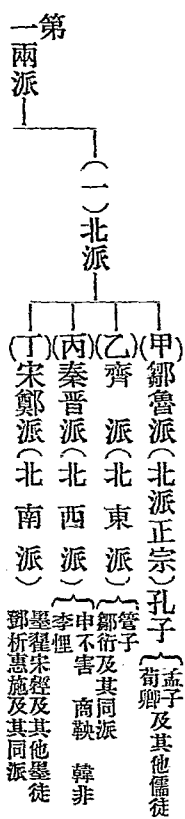 第
一兩派
(一)北派
(甲)鄒魯派(北派正宗)孔子
孟子
荀卿
及其他儒徒
(乙)齊派(北東派)
管子
鄒衍及其同派
(丙)秦晋派(北西派)
申不害 商鞅 韓非
李悝
(丁)宋鄭派(北南派)
墨翟宋牼及其他墨徒
鄧析惠施及其同派